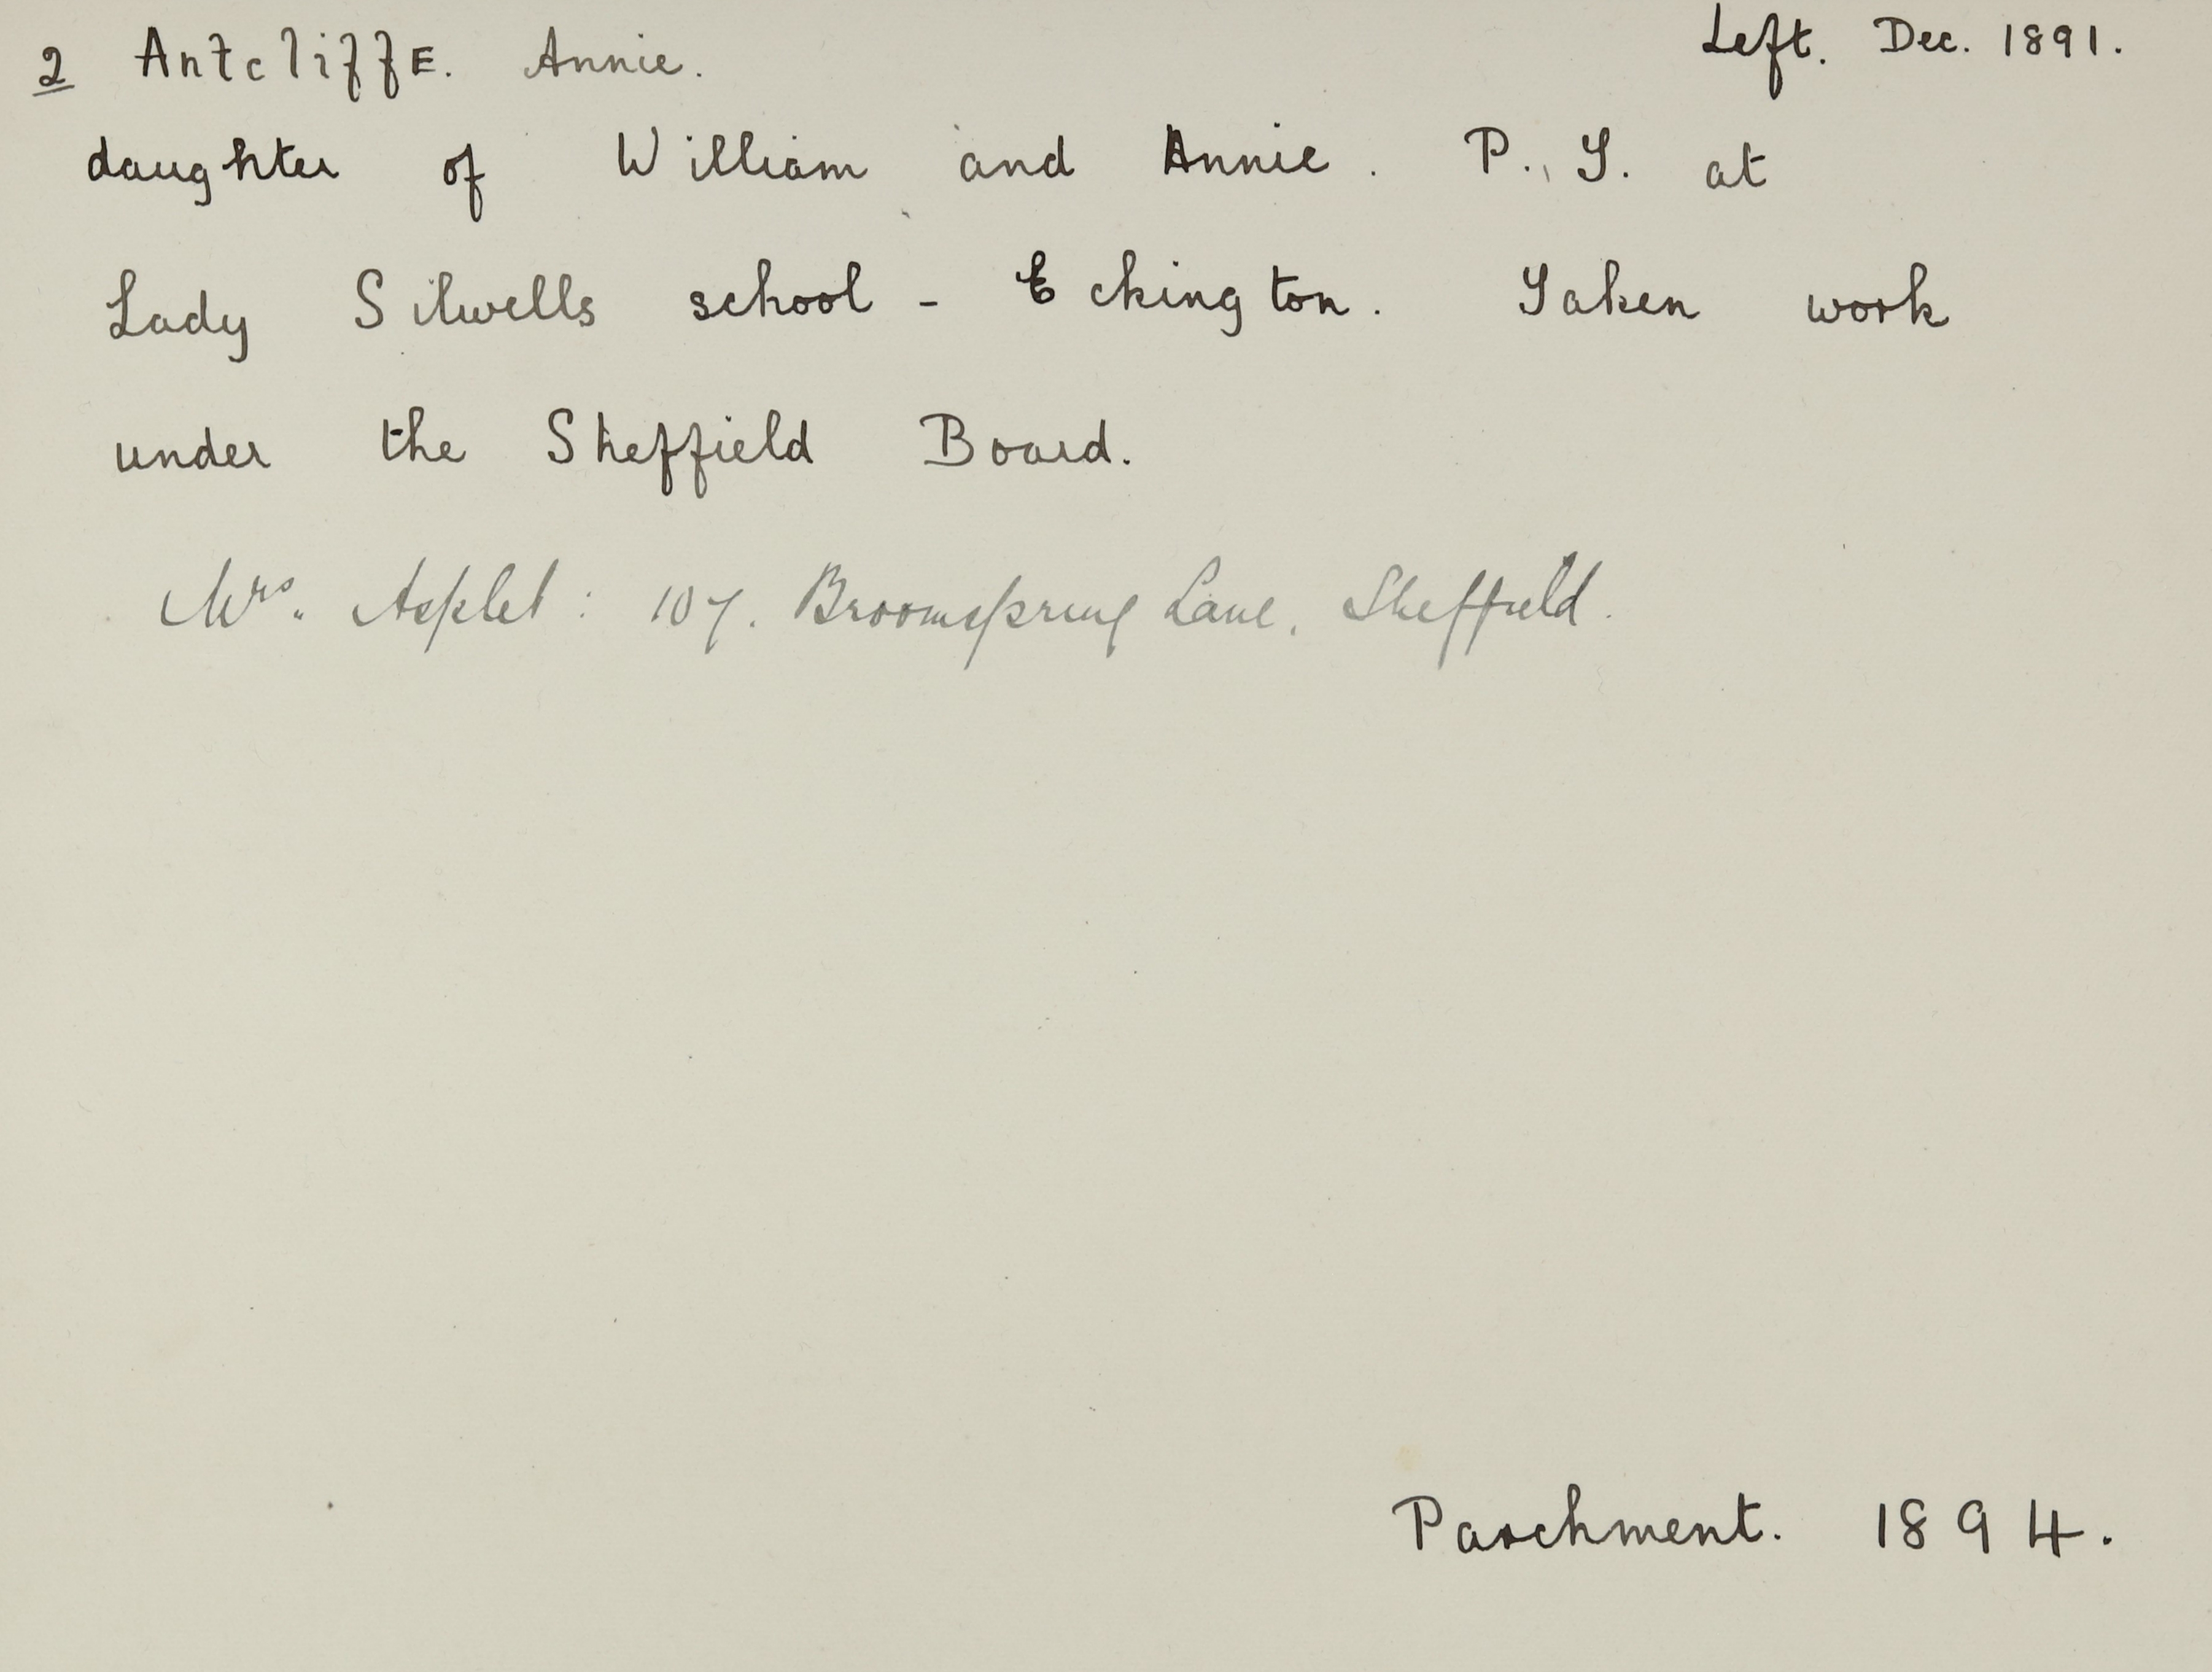 2 Antcliffe. Annie. Left. Dec. 1891.
daughter of William and Annie. P. T. at
Lady Sitwells school - Eckington. Taken work
under the Sheffield Board.
Mrs. : 107. Broomspring Lane, Sheffield.
Parchment. 1894.